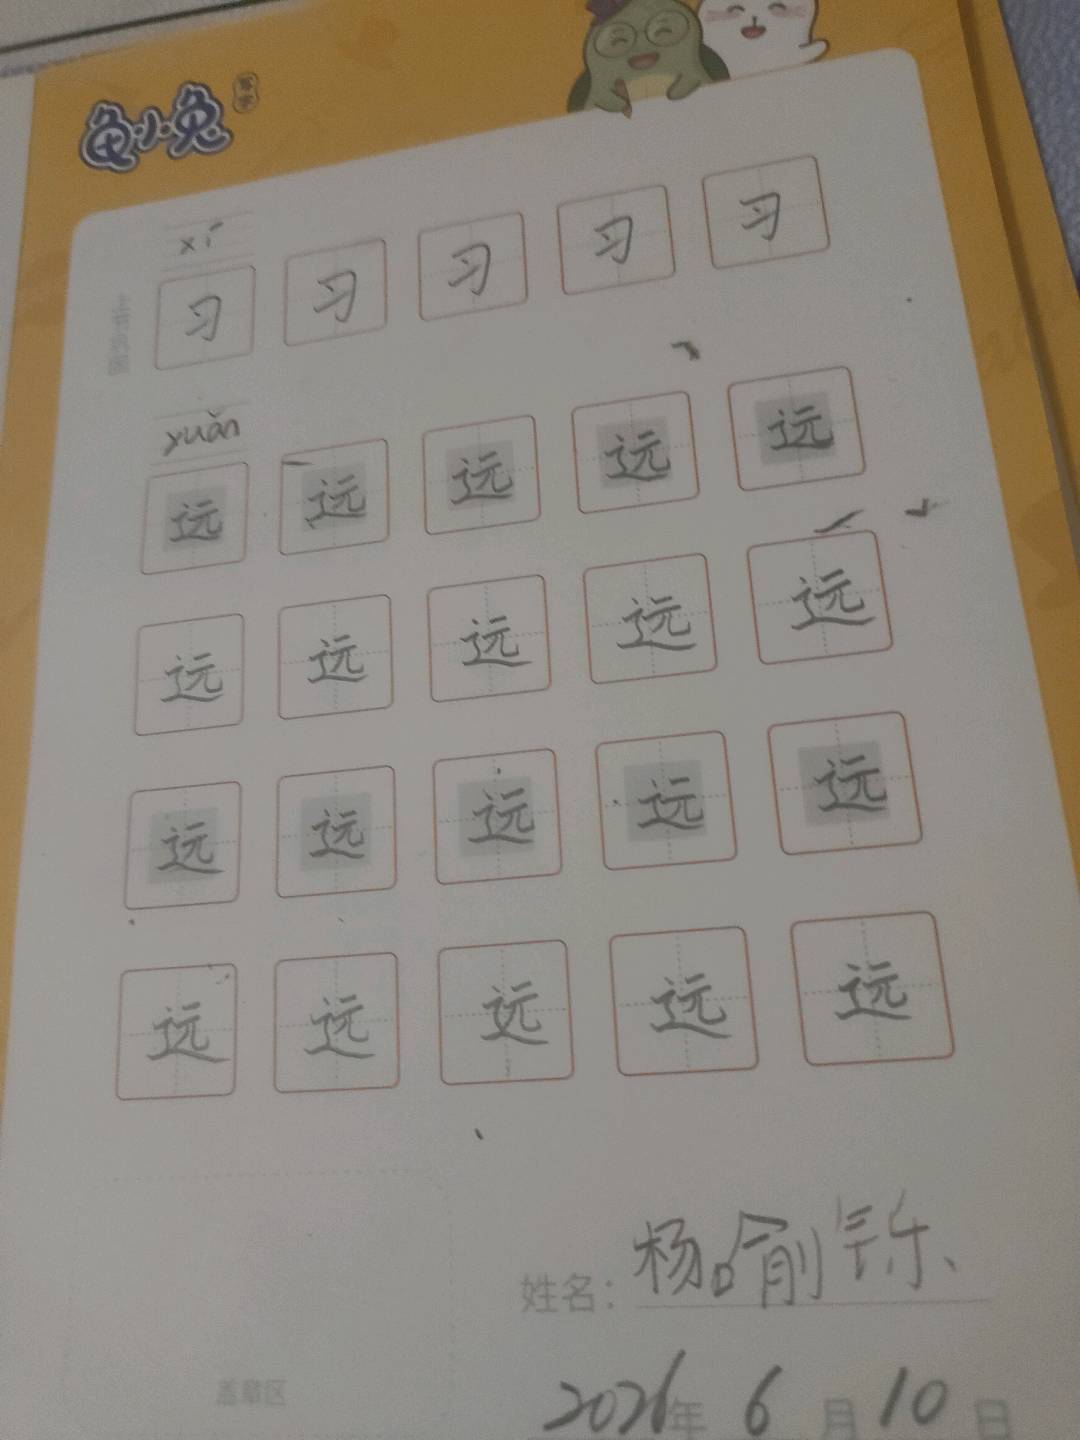 龟小兔
xí
习 习 习 习 习
yuǎn
远 远 远 远 远
远 远 远 远 远
远 远 远 远 远
远 远 远 远 远
姓名：杨喻铄
盖章区
2026年 6 月 10 日